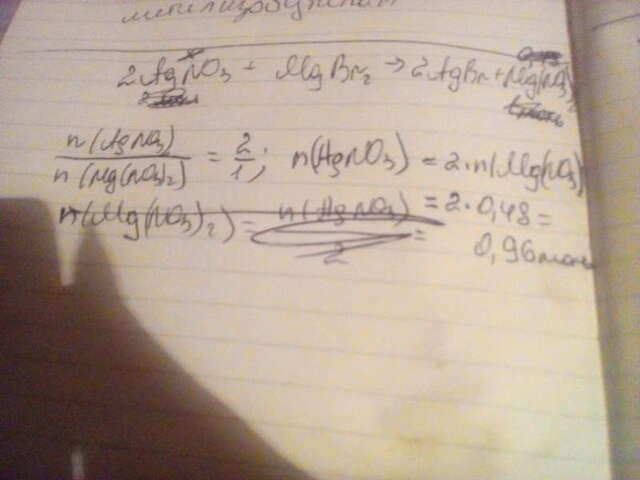 метилизобутилат
2AgNO₃ + MgBr₂ → 2AgBr + Mg(NO₃)
n(AgNO₃) / n(Mg(NO₃)₂) = 2/1; n(AgNO₃) = 2·n(Mg(NO₃)
n(Mg(NO₃)₂) = n(AgNO₃) / 2 = 2·0,48 =
= 0,96 моль